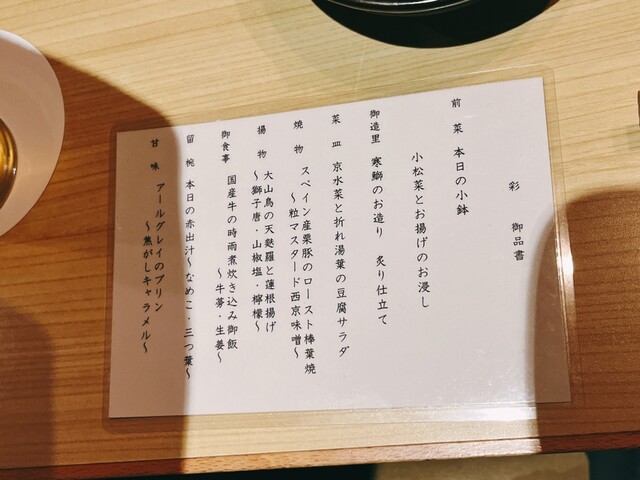 彩 御品書
前菜 本日の小鉢
小松菜とお揚げのお浸し
御造里 寒鰤のお造り 炙り仕立て
菜皿 京水菜と折れ湯葉の豆腐サラダ
焼物 スペイン産栗豚のロースト棒葉焼
〜粒マスタード西京味噌〜
揚物 大山鳥の天麩羅と蓮根揚げ
〜獅子唐・山椒塩・檸檬〜
御食事 国産牛の時雨煮炊き込み御飯
〜牛蒡・生姜〜
留椀 本日の赤出汁〜なめこ・三つ葉〜
甘味 アールグレイのプリン
〜焦がしキャラメル〜